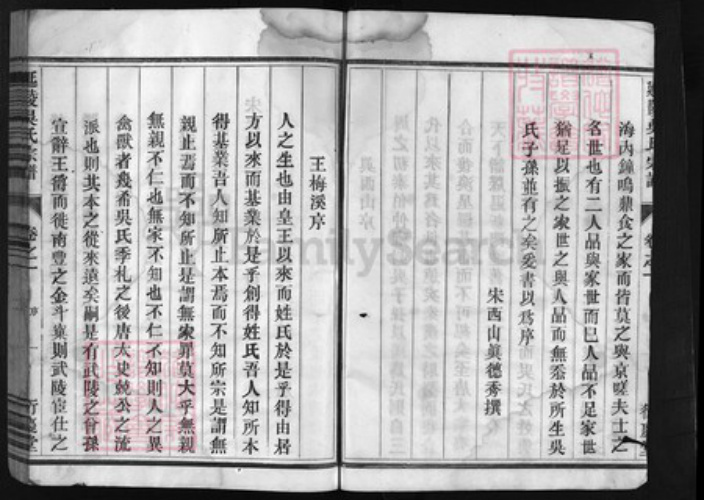 海内鐘鳴鼎食之家而皆莫之與京嗟夫士之
名世也有二人品與家世而已人品不足家世
猶足以振之家世之與人品而無忝於所生吳
氏子孫並有之矣爰書以為序
宋西山眞德秀撰
王梅溪序
人之生也由皇王以來而姓氏於是乎得由居
方以來而基業於是乎創得姓氏吾人知所本
得基業吾人知所止本焉而不知所宗是謂無
親止焉而不知所止是謂無家罪莫大乎無親
無親不仁也無家不知也不仁不知則人之異
禽獸者幾希吳氏季札之後唐太史兢公之流
派也則其本之從來遠矣嗣是有武陵之曾孫
宣辭王爵而徙南豐之金斗窠則武陵宦仕之
延陵吳氏宗譜
卷之一
序
一
行慶堂
FamilySearch